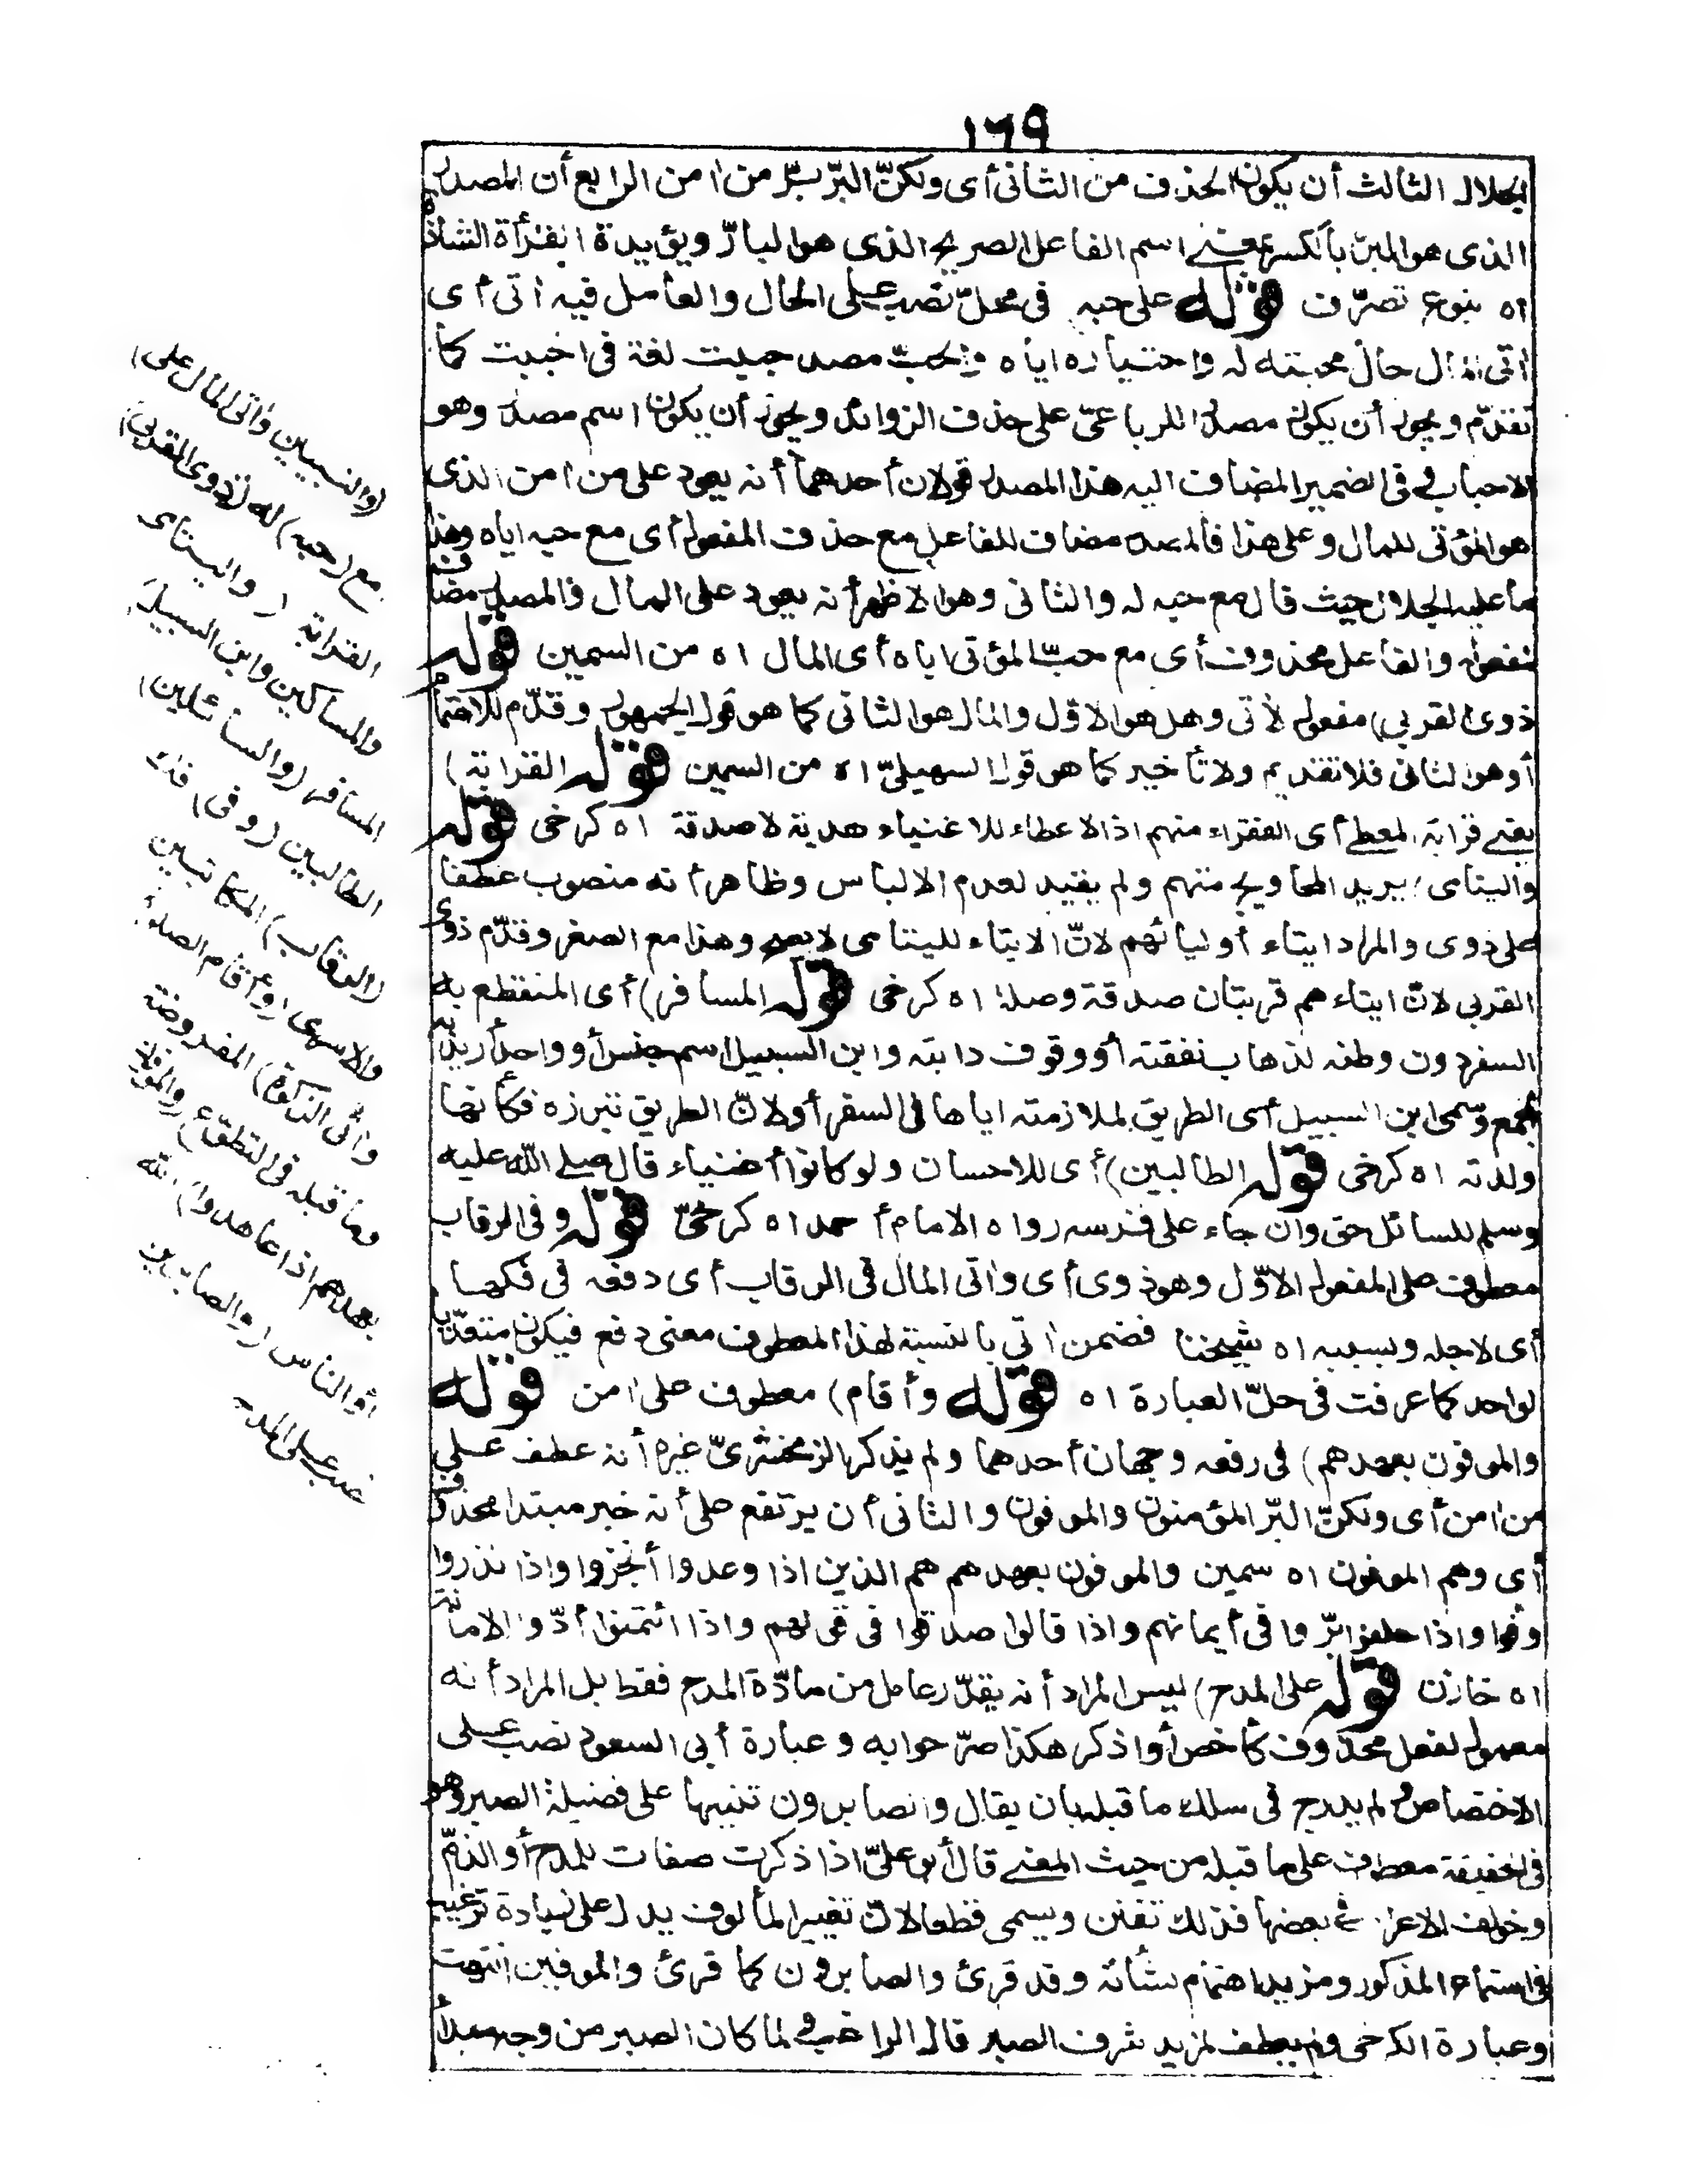 ١٦٩
الجلال الثالث أن يكون الحذف من الثانى أى ولكنّ البرّ برّ من اٰمن الرابع أن المصدر
الذى هو البرّ بالكسر بمعنى اسم الفاعل الصريح الذى هو البارّ ويؤيدة القرأة الشاذة
اه بنوع تصرّف قوله على حبه فى محلّ نصب على الحال والعامل فيه اٰتى أى
اٰتى المال حال محبته له واختياره اياه والحبّ مصدر حببت لغة فى احببت كما
تقدّم ويجوز أن يكون مصدرا للرباعىّ على حذف الزوائد ويجوز أن يكون اسم مصدر وهو
الاحباب وفى الضمير المضاف اليه هذا المصدر قولان أحدهما أنه يعود على من اٰمن الذى
هو المؤتى للمال وعلى هذا فالمصدر مضاف للفاعل مع حذف المفعول أى مع حبه اياه وهذا
ما عليه الجلال حيث قال مع حبه له والثانى وهو الاظهر أنه يعود على المال فالمصدر مضاف
لمفعوله والفاعل محذوف أى مع حبّ المؤتى اياه أى المال اه من السمين قوله
ذوى القربى) مفعول لأتى وهل هو الاوّل والمال هو الثانى كما هو قول الجمهور وقدّم للاهتمام
أو هو الثانى فلا تقديم ولا تأخير كما هو قول السهيلىّ اه من السمين قوله القرابة)
يعنى قرابة المعطى أى الفقراء منهم اذ الاعطاء للاغنياء هدية لا صدقة اه كرخى قوله
واليتامى) يريد المحاويج منهم ولم يقيد لعدم الالباس وظاهر أنه منصوب عطفا
على ذوى والمراد ايتاء أوليائهم لانّ الايتاء لليتامى لا يصح وهذا مع الصغر وقدّم ذوى
القربى لانّ ايتاءهم قربتان صدقة وصلة اه كرخى قوله المسافر) أى المنقطع به
السفر دون وطنه لذهاب نفقته أو وقوف دابته وابن السبيل اسم جنس أو واحد أريد به
الجمع وسمى ابن السبيل أى الطريق لملازمته اياها فى السفر أولانّ الطريق تبرزه فكأنها
ولدته اه كرخى قوله الطالبين) أى للاحسان ولو كانوا أغنياء قال صلى الله عليه
وسلم للسائل حق وان جاء على فرسه رواه الامام أحمد اه كرخىّ قوله وفى الرقاب
معطوف على المفعول الاوّل وهو ذوى أى واٰتى المال فى الرقاب أى دفعه فى فكها
أى لاجله وبسببه اه شيخنا فضمن اٰتى بالنسبة لهذا المعطوف معنى دفع فيكون متعدّيا
لواحد كما عرفت فى حلّ العبارة اه قوله وأقام) معطوف على اٰمن قوله
والموفون بعهدهم) فى رفعه وجهان أحدهما ولم يذكر الزمخشرىّ غيره أنه عطف على
من اٰمن أى ولكنّ البرّ المؤمنون والموفون والثانى أن يرتفع على أنه خبر مبتدا محذوف
أى وهم الموفون اه سمين والموفون بعهدهم هم الذين اذا وعدوا أنجزوا واذا نذروا
وفوا واذا حلفوا برّوا فى أيمانهم واذا قالوا صدقوا فى قولهم واذا ائتمنوا أدّوا الامانة
اه خازن قوله على المدح) ليس المراد أنه يقدّر عامل من مادّة المدح فقط بل المراد أنه
معمول لفعل محذوف كأخص أو اذكر هكذا صرّحوا به وعبارة أبى السعود نصب على
الاختصاص ولم يدرج فى سلك ما قبله بان يقال والصابرون تنبيها على فضيلة الصبر وهو
فى الحقيقة معطوف على ما قبله من حيث المعنى قال أبو علىّ اذا ذكرت صفات للمدح أو الذمّ
وخولف الاعراب فى بعضها فذلك تفنن ويسمى قطعا لانّ تغيير المألوف يدل على زيادة ترغيب
فى استماع المذكور ومزيد اهتمام بشأنه وقد قرئ والصابرون كما قرئ والموفين انتهت
وعبارة الكرخى ولم يعطف لمزيد شرف الصبر قال الراغب ولما كان الصبر من وجه مبدأ
(والنبيين واٰتى المال على)
مع (حبه) له (ذوى القربى)
القرابة (واليتامى
والمساكين وابن السبيل)
المسافر (والسائلين)
الطالبين (وفى) فك
(الرقاب) المكاتبين
والاسرى (وأقام الصلوٰة
واٰتى الزكوٰة) المفروضة
وما قبله فى التطوّع (والموفون
بعهدهم اذا عاهدوا) الله
أو الناس (والصابرين
نصب على المدح